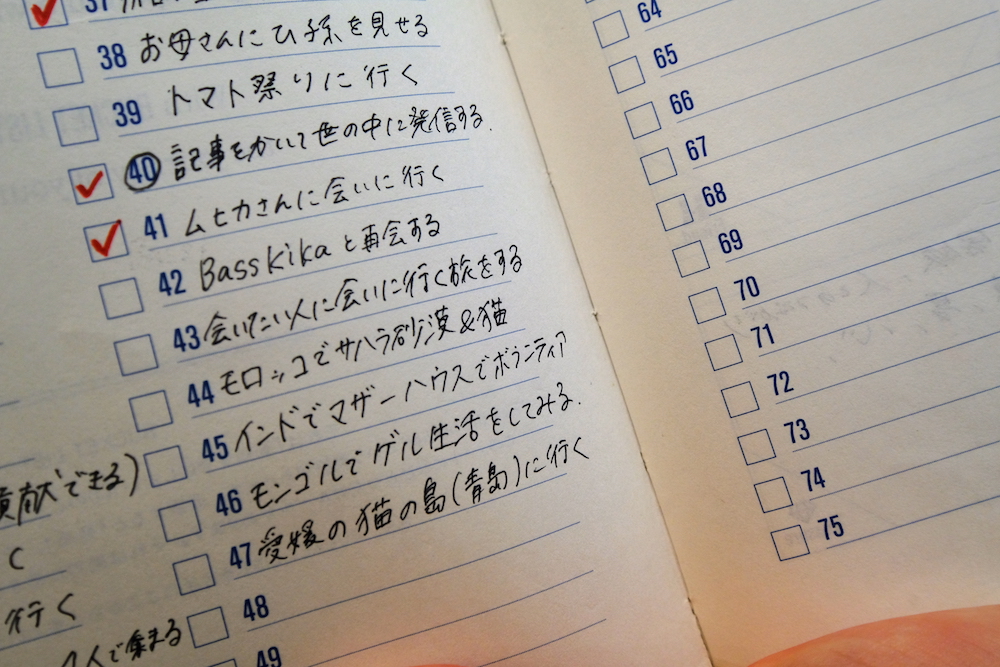 37
38 お母さんにひ孫を見せる
39 トマト祭りに行く
40 記事をかいて世の中に発信する.
41 ムヒカさんに会いに行く
42 Basskikaと再会する
43 会いたい人に会いに行く旅をする
44 モロッコでサハラ砂漠&猫
45 インドでマザーハウスでボランティア
46 モンゴルでゲル生活をしてみる.
47 愛媛の猫の島(青島)に行く
48
49
貢献できる)
く
行く
人で集まる
64
65
66
67
68
69
70
71
72
73
74
75